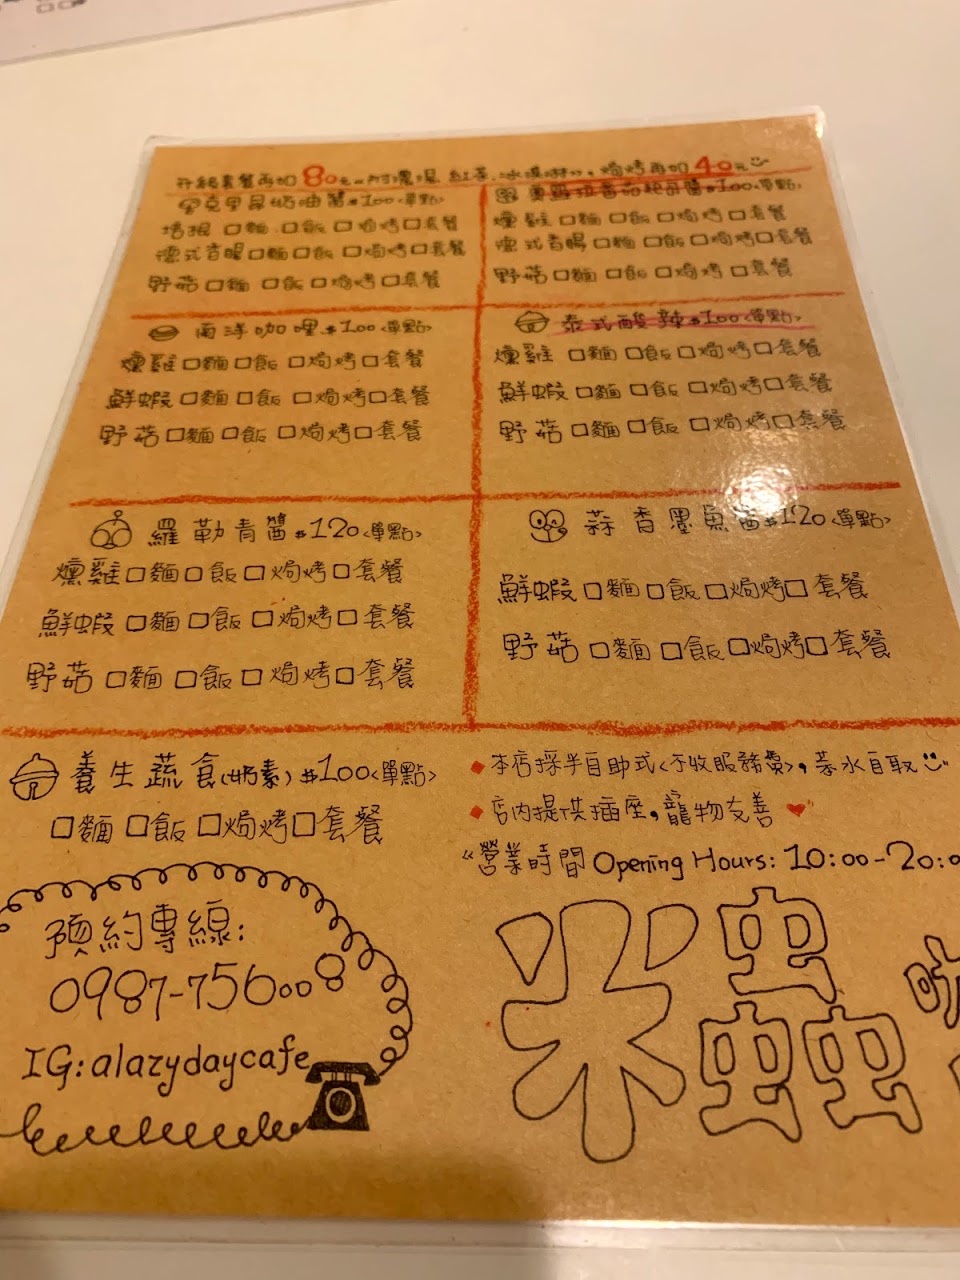 升級套餐再加80元 附濃湯、紅茶、冰淇淋,焗烤再加40元
克里尼奶油醬$100<單點>
培根□麵□飯□焗烤□套餐
德式香腸□麵□飯□焗烤□套餐
野菇□麵□飯□焗烤□套餐
番茄 醬$100<單點>
燻雞□麵□飯□焗烤□套餐
德式香腸□麵□飯□焗烤□套餐
野菇□麵□飯□焗烤□套餐
南洋咖哩$100<單點>
燻雞□麵□飯□焗烤□套餐
鮮蝦□麵□飯□焗烤□套餐
野菇□麵□飯□焗烤□套餐
泰式酸辣$100<單點>
燻雞□麵□飯□焗烤□套餐
鮮蝦□麵□飯□焗烤□套餐
野菇□麵□飯□焗烤□套餐
羅勒青醬$120<單點>
燻雞□麵□飯□焗烤□套餐
鮮蝦□麵□飯□焗烤□套餐
野菇□麵□飯□焗烤□套餐
蒜香墨魚醬$120<單點>
鮮蝦□麵□飯□焗烤□套餐
野菇□麵□飯□焗烤□套餐
養生蔬食(奶素)$100<單點>
□麵□飯□焗烤□套餐
本店採半自助式<不收服務費>,茶水自取
店內提供插座,寵物友善
營業時間 Opening Hours: 10:00-20:0
預約專線:
0987-756008
IG:alazydaycafe
米蟲咖